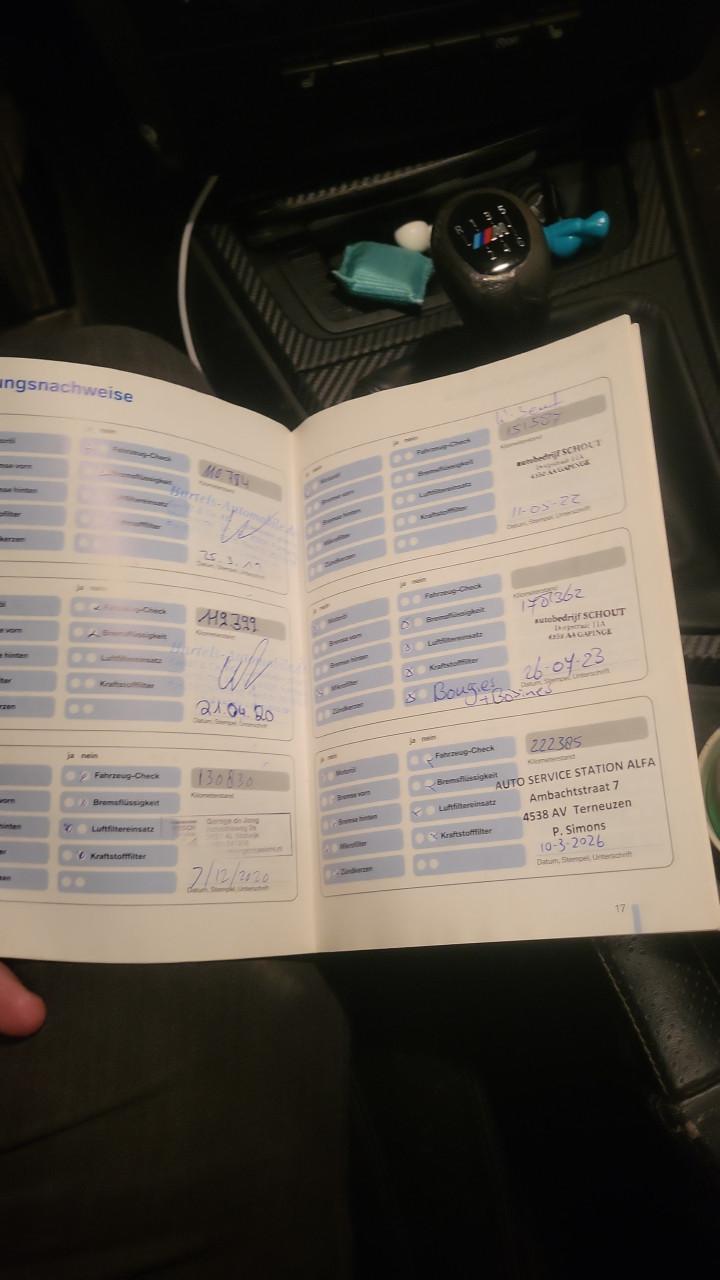 ungsnachweise
ja nein
Fahrzeug-Check
110784
Kilometerstand
nse vorn
Bremsflüssigkeit
nse hinten
Luftfiltereinsatz
Kraftstofffilter
Datum, Stempel, Unterschrift
ja nein
Fahrzeug-Check
119399
Kilometerstand
vorn
Bremsflüssigkeit
hinten
Luftfiltereinsatz
Kraftstofffilter
21.04.20
Datum, Stempel, Unterschrift
ja nein
Fahrzeug-Check
130830
Kilometerstand
vorn
Bremsflüssigkeit
hinten
Luftfiltereinsatz
Garage de Jong
Kraftstofffilter
7/12/2020
Datum, Stempel, Unterschrift
ja nein
Motoröl
Fahrzeug-Check
151587
Kilometerstand
Bremse vorn
Bremsflüssigkeit
autobedrijf SCHOUT
Dorpstraat 11A
Bremse hinten
Luftfiltereinsatz
Mikrofilter
Kraftstofffilter
11-05-22
Datum, Stempel, Unterschrift
Zündkerzen
ja nein
Motoröl
Fahrzeug-Check
Kilometerstand
Bremse vorn
Bremsflüssigkeit
autobedrijf SCHOUT
Dorpstraat 11A
Bremse hinten
Luftfiltereinsatz
Mikrofilter
Kraftstofffilter
Zündkerzen
Bougies
Datum, Stempel, Unterschrift
ja nein
Motoröl
Fahrzeug-Check
222385
Kilometerstand
Bremse vorn
Bremsflüssigkeit
AUTO SERVICE STATION ALFA
Bremse hinten
Luftfiltereinsatz
Ambachtstraat 7
4538 AV Terneuzen
Mikrofilter
Kraftstofffilter
P. Simons
10-3-2026
Zündkerzen
Datum, Stempel, Unterschrift
17